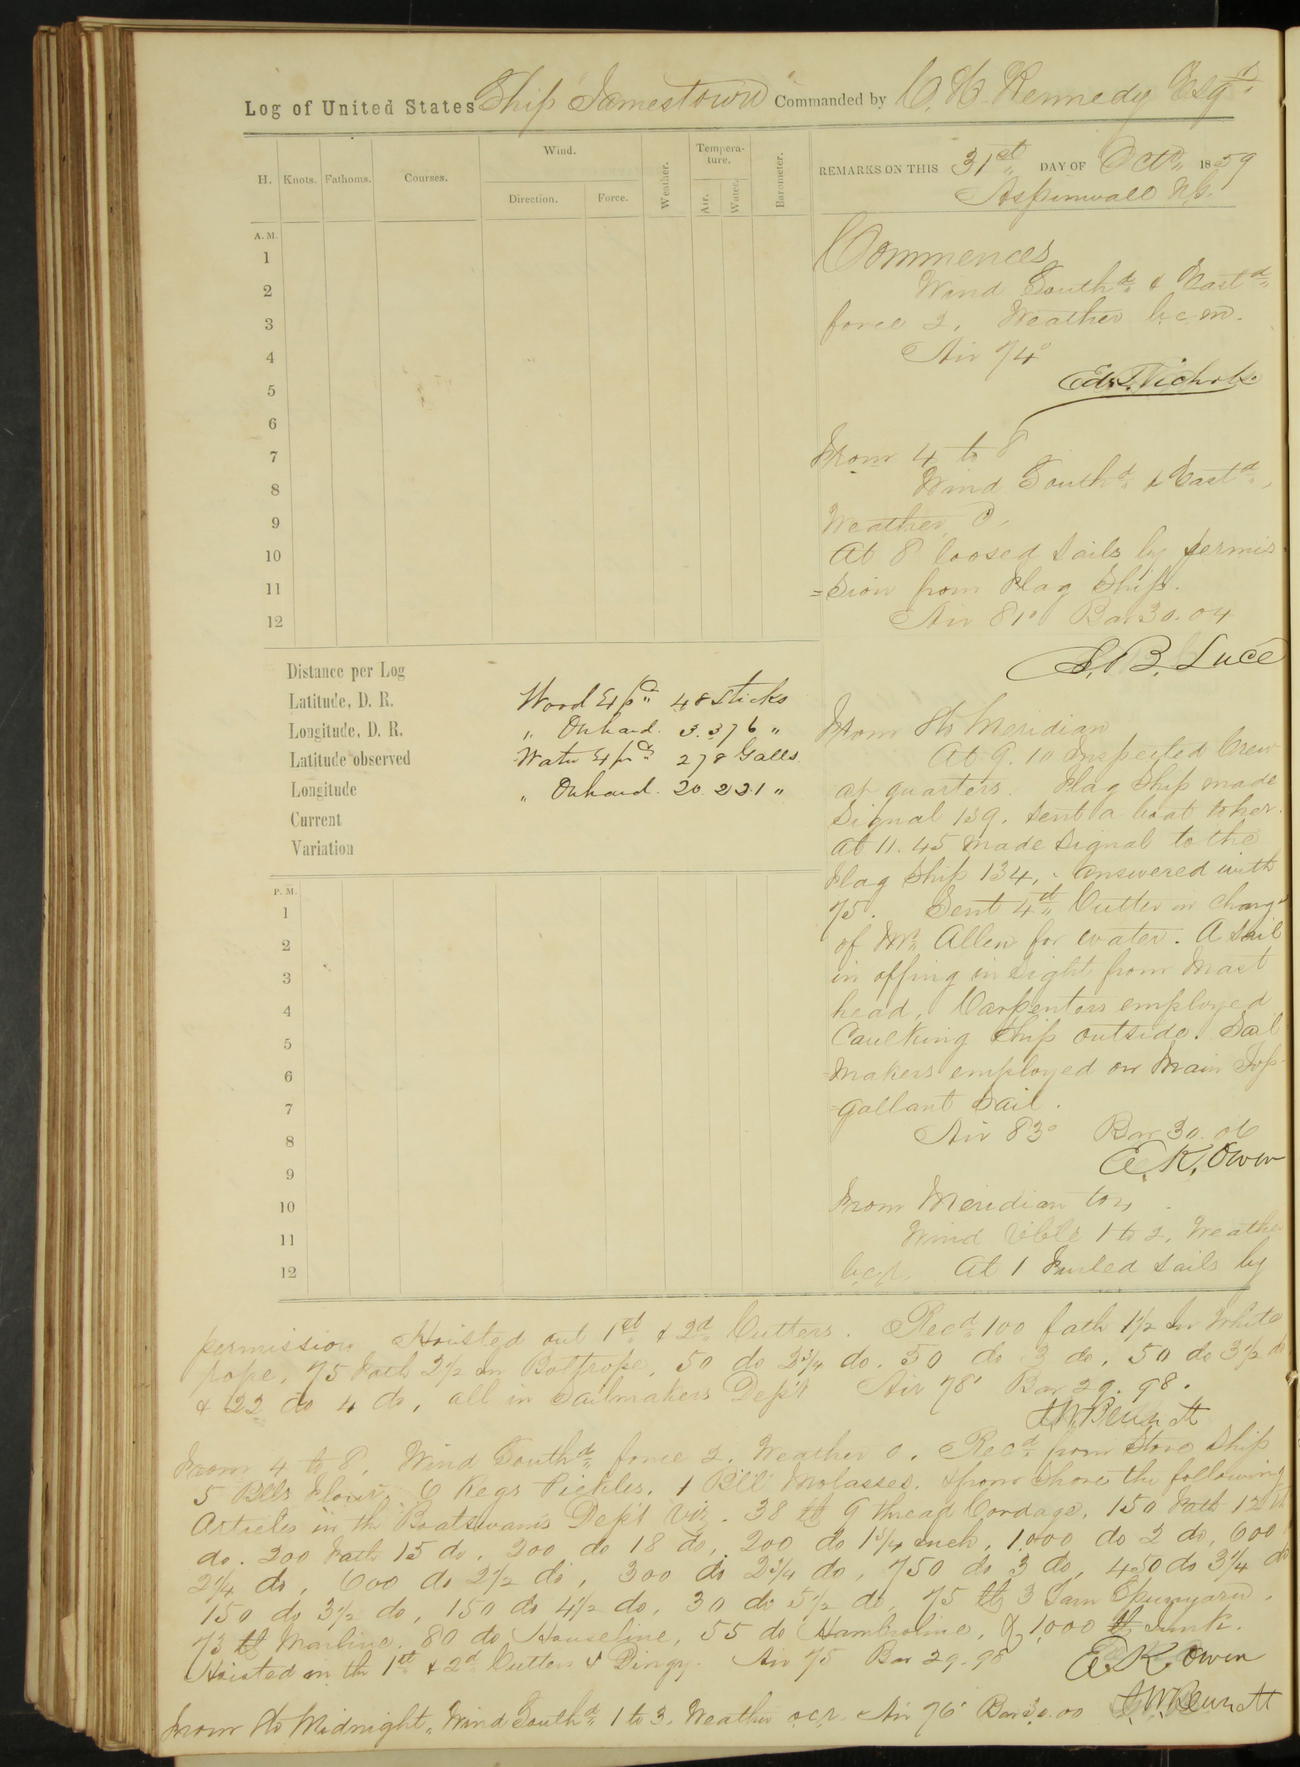 Log of United States Ship Jamestown Commanded by C. H. Kennedy Esqr
H. Knots. Fathoms. Courses. Wind. Direction. Force. Weather. Tempera-ture. Air. Water. Barometer.
REMARKS ON THIS 31st DAY OF Octr 1859
Aspinwall N.G.
A. M.
1
2
3
4
5
6
7
8
9
10
11
12
Commences
Wind Southd & Eastd
force 2, Weather b.c.m.
Air 74°
Ed. T. Nichols
From 4 to 8
Wind Southd & Eastd,
Weather C,
At 8 loosed sails by permis
=sion from Flag Ship.
Air 81° Bar 30.04
S. B. Luce
Distance per Log
Latitude, D. R.
Longitude, D. R.
Latitude observed
Longitude
Current
Variation
Wood Expd 48 Sticks
" Onhand. 3.376 "
Water Expd 278 Galls
" Onhand. 20.221 "
From 8 to Meridian
At 9.10 inspected Crew
at quarters. Flag Ship made
Signal 139. sent a boat to her.
At 11.45 made signal to the
Flag Ship 134, answered with
75. Sent 4th Cutter in charge
of Mr. Allen for water. A sail
in offing in sight from Mast
head, Carpenters employed
Caulking Ship outside. Sail
=makers employed on Main Top
=gallant sail.
Air 83° Bar 30.06
E. K. Owen
P. M.
1
2
3
4
5
6
7
8
9
10
11
12
From Meridian to 4
Wind Vible 1 to 2, Weather
b.c.r. At 1 Furled sails by
permission Hoisted out 1st & 2d Cutters. Recd 100 fath 1½ in White
rope, 75 Fath 2½ in Boltrope, 50 do 2¾ do. 50 do 3 do, 50 do 3½ do
& 22 do 4 do, all in Sailmakers Dept Air 78° Bar 29.98.
J. W. Bennett
From 4 to 8. Wind Southd force 2. Weather o. Recd from Store Ship
5 Blls Flour, 6 Kegs Pickles, 1 Bll Molasses. & from Shore the following
Articles in the Boatswains Dept Viz. 38 lb 9 thread Cordage, 150 Fath 12 th
do. 200 Fath 15 do. 200 do 18 do, 200 do 1¾ inch, 1,000 do 2 do, 600
2¼ do, 600 do 2½ do, 300 do 2¾ do, 750 do 3 do, 450 do 3¼ do
150 do 3½ do, 150 do 4½ do, 30 do 5½ do, 75 lb 3 Yarn Spunyarn,
73 lb Marline, 80 do Houseline, 55 do Hambroline, & 1,000 lb Junk.
Hoisted in the 1st & 2d Cutters & Dingy. Air 75 Bar 29.98 E. K. Owen
From 8 to Midnight, Wind Southd 1 to 3. Weather o.c.r. Air 76° Bar 30.00 J. W. Bennett